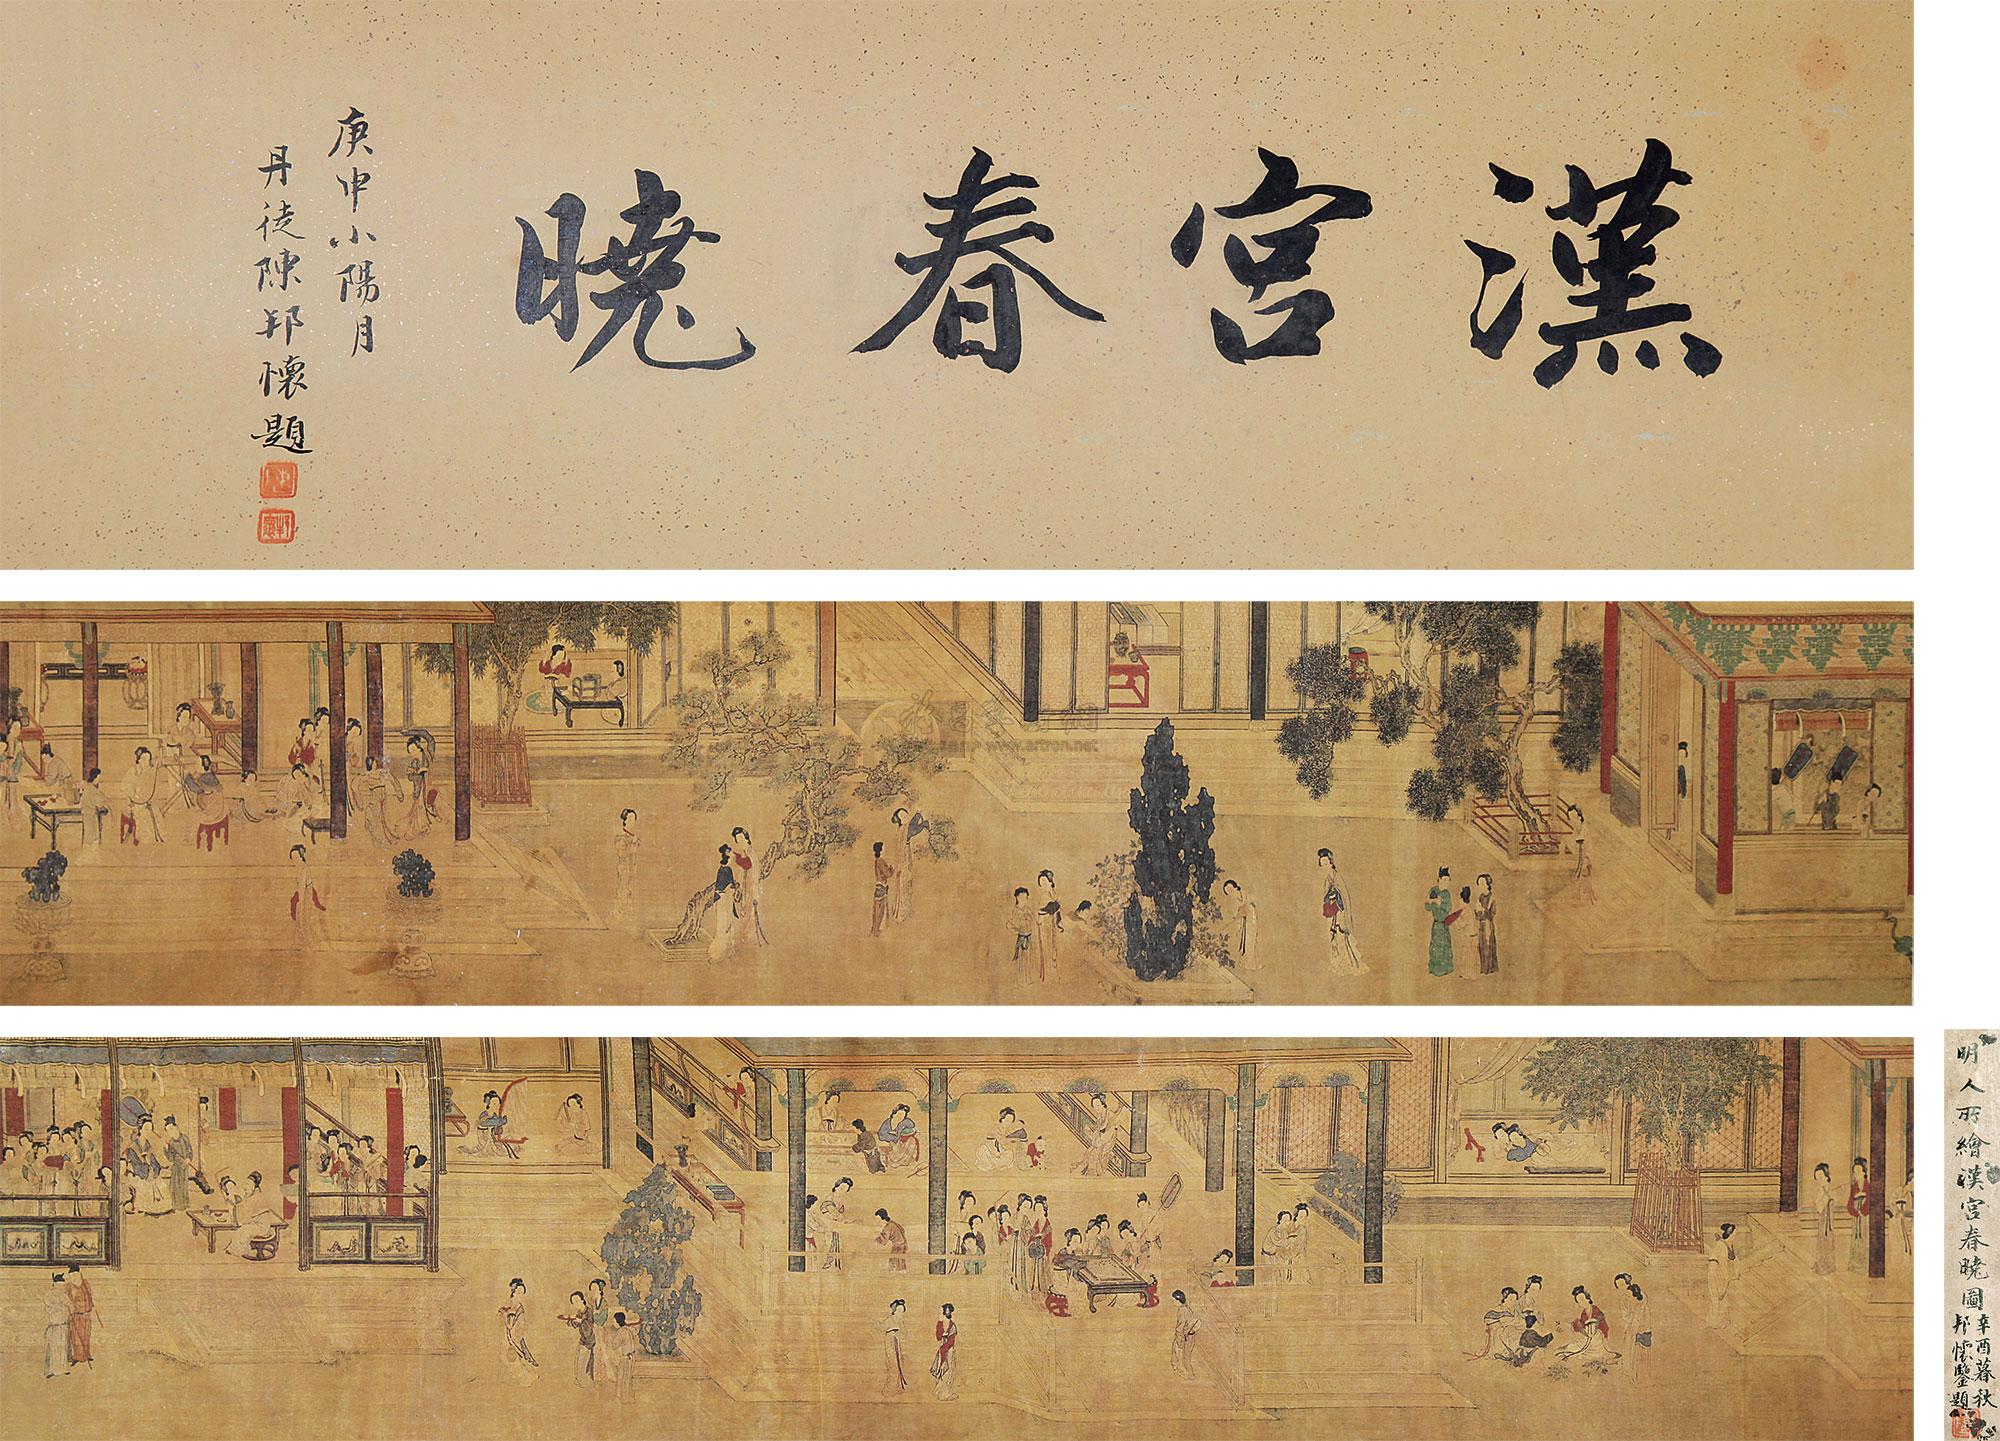 漢宮春曉
庚申小陽月
丹徒陳邦懷題
www.artron.net
明人所繪漢宮春曉圖
辛酉暮秋
邦懷鑒題